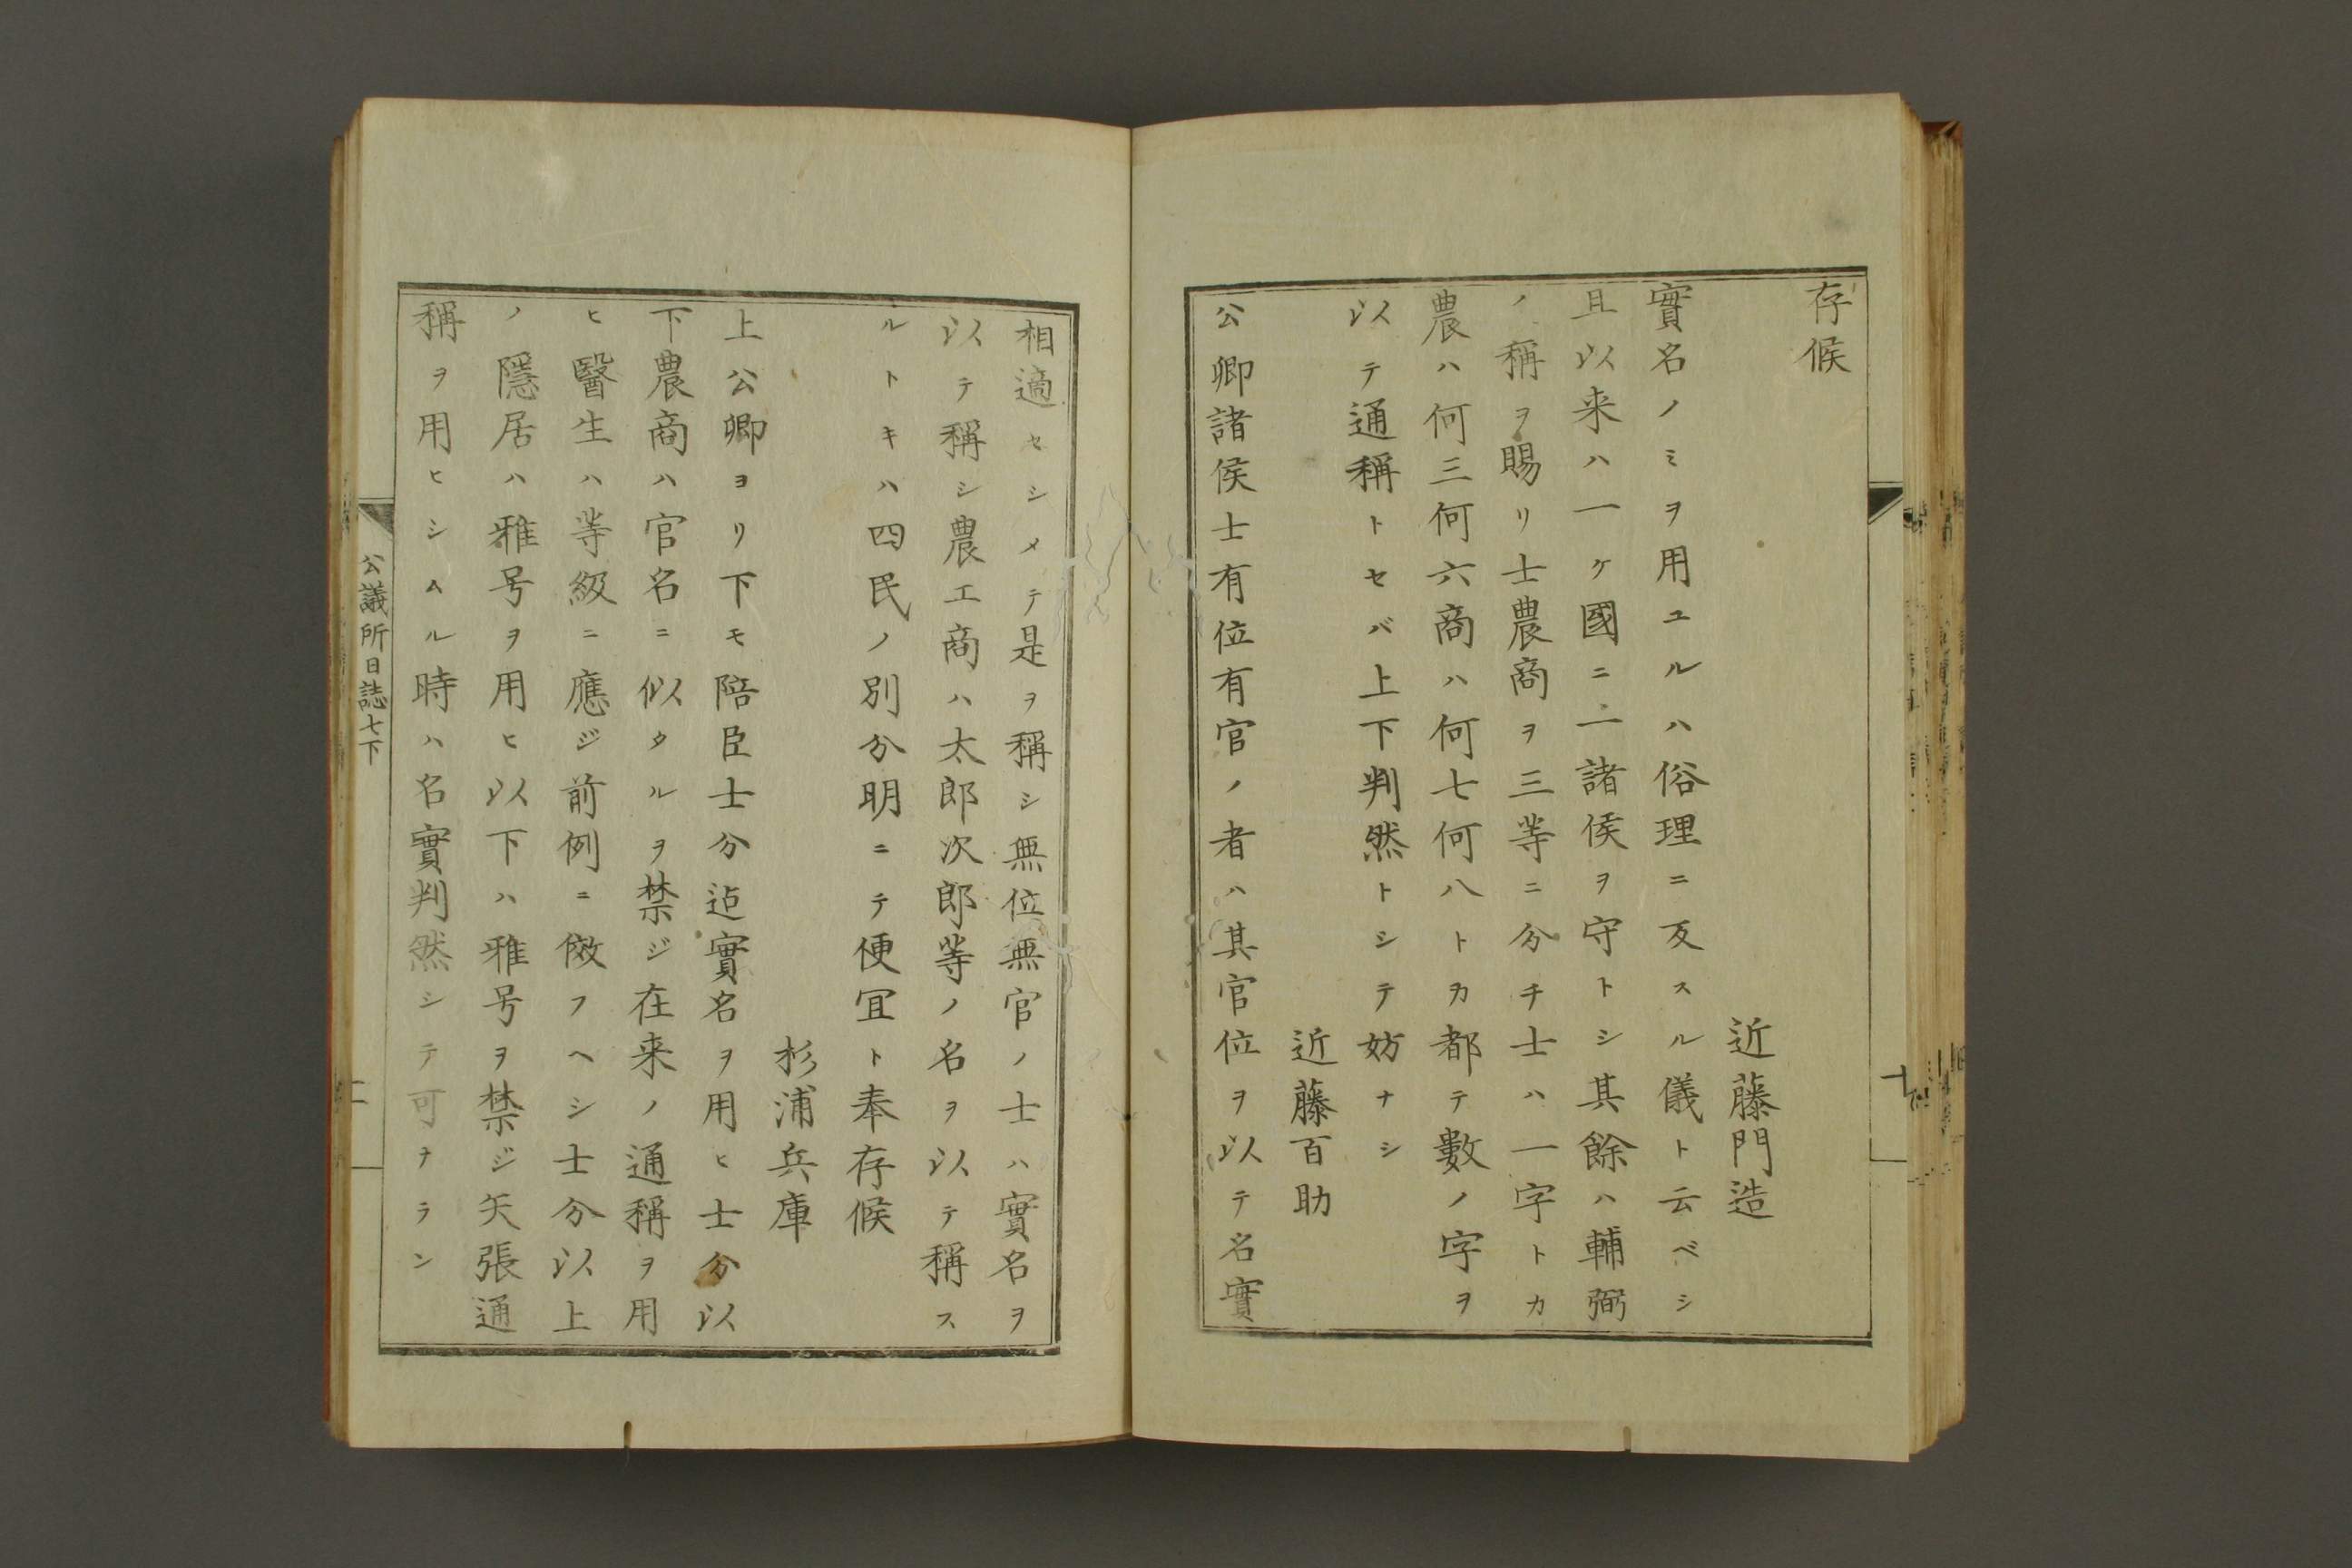 存候
近藤門造
實名ノミヲ用ユルハ俗理ニ反スル儀ト云ベシ
且以来ハ一ケ國ニ一諸侯ヲ守トシ其餘ハ輔弼
ノ稱ヲ賜リ士農商ヲ三等ニ分チ士ハ一字トカ
農ハ何三何六商ハ何七何八トカ都テ數ノ字ヲ
以テ通稱トセバ上下判然トシテ妨ナシ
近藤百助
公卿諸侯士有位有官ノ者ハ其官位ヲ以テ名實
相適セシメテ是ヲ稱シ無位無官ノ士ハ實名ヲ
以テ稱シ農工商ハ太郎次郎等ノ名ヲ以テ稱ス
ルトキハ四民ノ別分明ニテ便冝ト奉存候
杉浦兵庫
上公卿ヨリ下モ陪臣士分迠實名ヲ用ヒ士分以
下農商ハ官名ニ似タルヲ禁ジ在来ノ通稱ヲ用
ヒ醫生ハ等級ニ應ジ前例ニ傚フヘシ士分以上
ノ隱居ハ雅号ヲ用ヒ以下ハ雅号ヲ禁ジ矢張通
稱ヲ用ヒシムル時ハ名實判然シテ可ナラン
公議所日誌七下